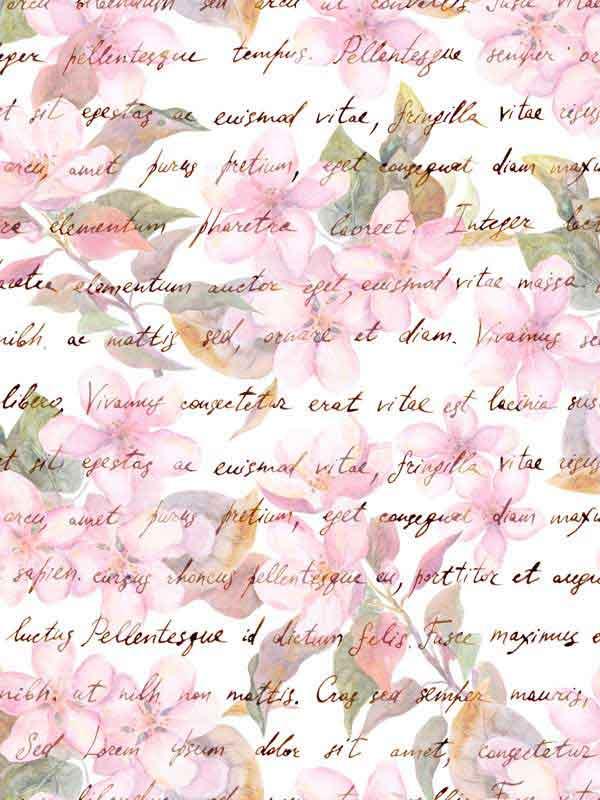 arcu bibendum sed arcu ut convallis Fusce vitae
eger pellentesque tempus. Pellentesque semper or
t sit egestas ac euismod vitae, fringilla vitae risus
arcu, amet purus pretium, eget consequat diam maxu
re elementum pharetra laoreet. Integer lact
aretra elementum auctor eget, euismod vitae massa.
nibh. ac mattis sed, ornare et diam. Vivamus se
libero. Vivamus consectetur erat vitae est lacinia sus
t sit egestas ac euismod vitae, fringilla vitae risus
arcu, amet purus pretium, eget consequat diam maxu
sapien. cursus rhoncus pellentesque eu, porttitor et augu
luctus Pellentesque id dictum felis. Fusce maximus e
nibh. ut nibh non mattis. Cras sed semper mauris,
Sed Lorem ipsum dolor sit amet, consectetur